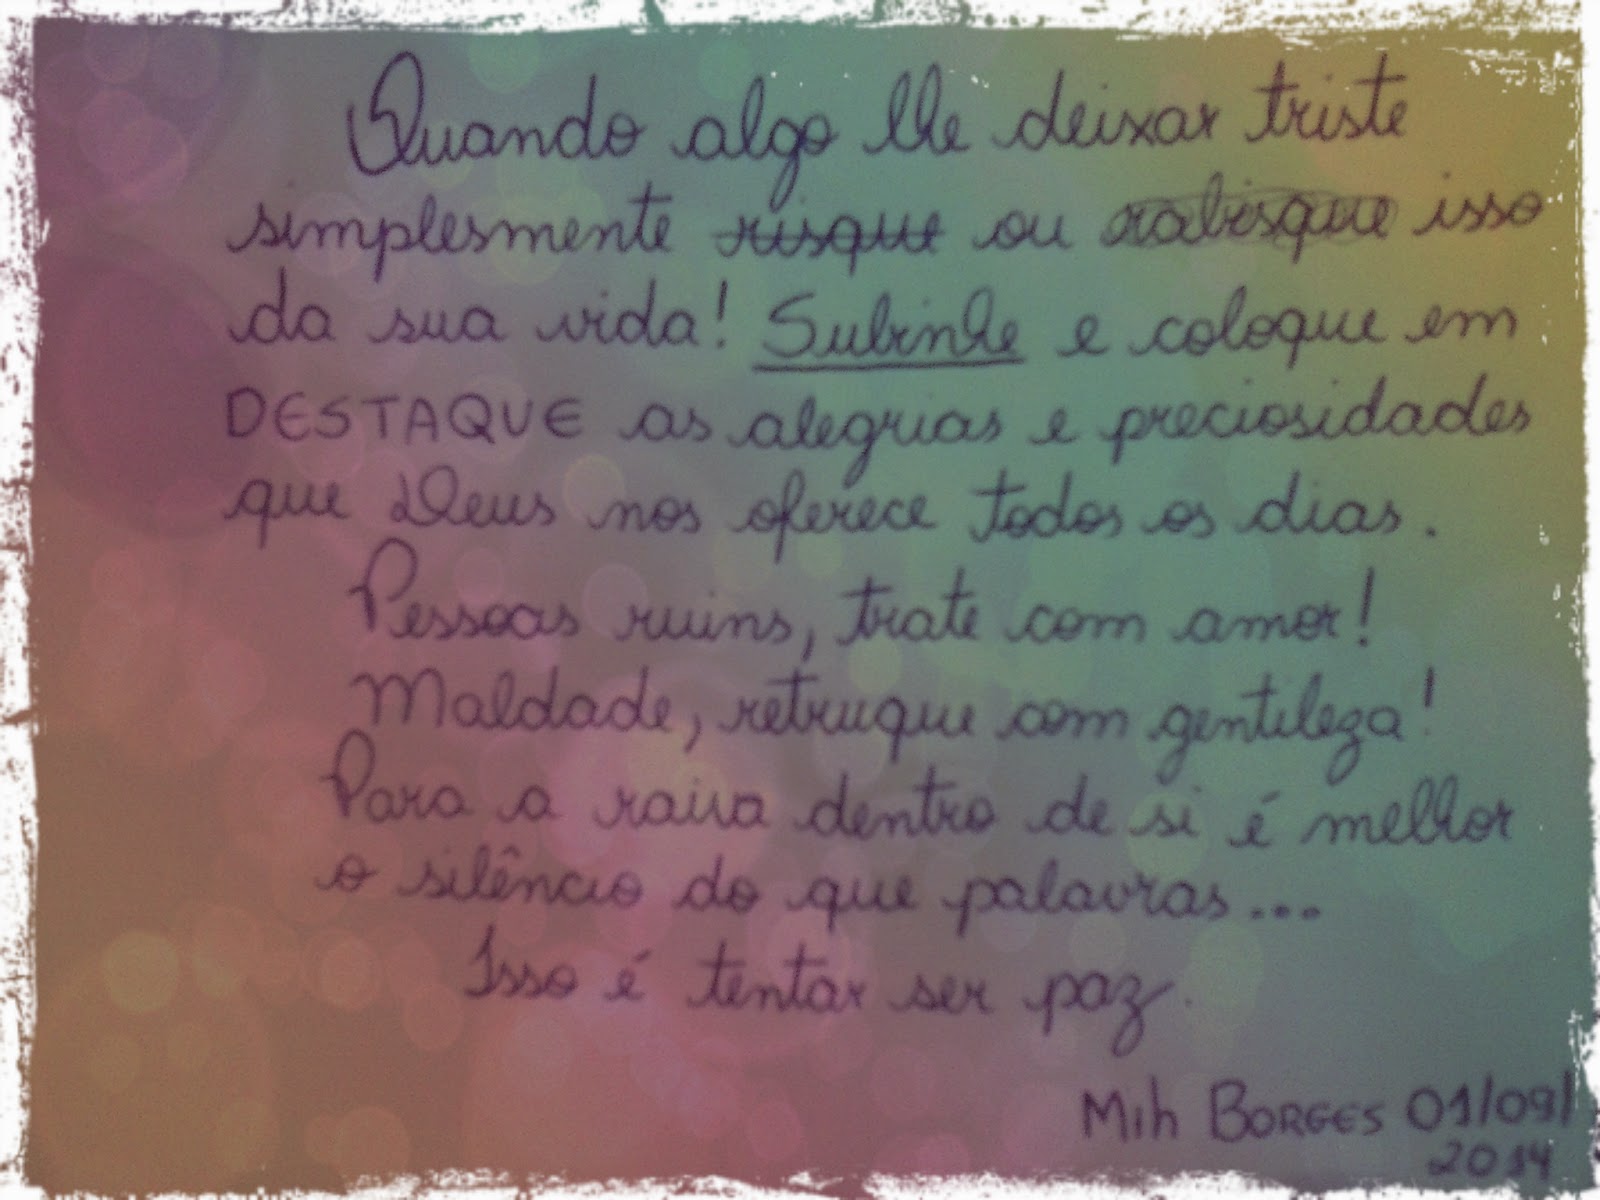 Quando algo lhe deixar triste
simplesmente risque ou rabisque isso
da sua vida! Sublinhe e coloque em
DESTAQUE as alegrias e preciosidades
que Deus nos oferece todos os dias.
Pessoas ruins, trate com amor!
Maldade, retruque com gentileza!
Para a raiva dentro de si é melhor
o silêncio do que palavras...
Isso é tentar ser paz.
Mih BORGES 01/09/
2014